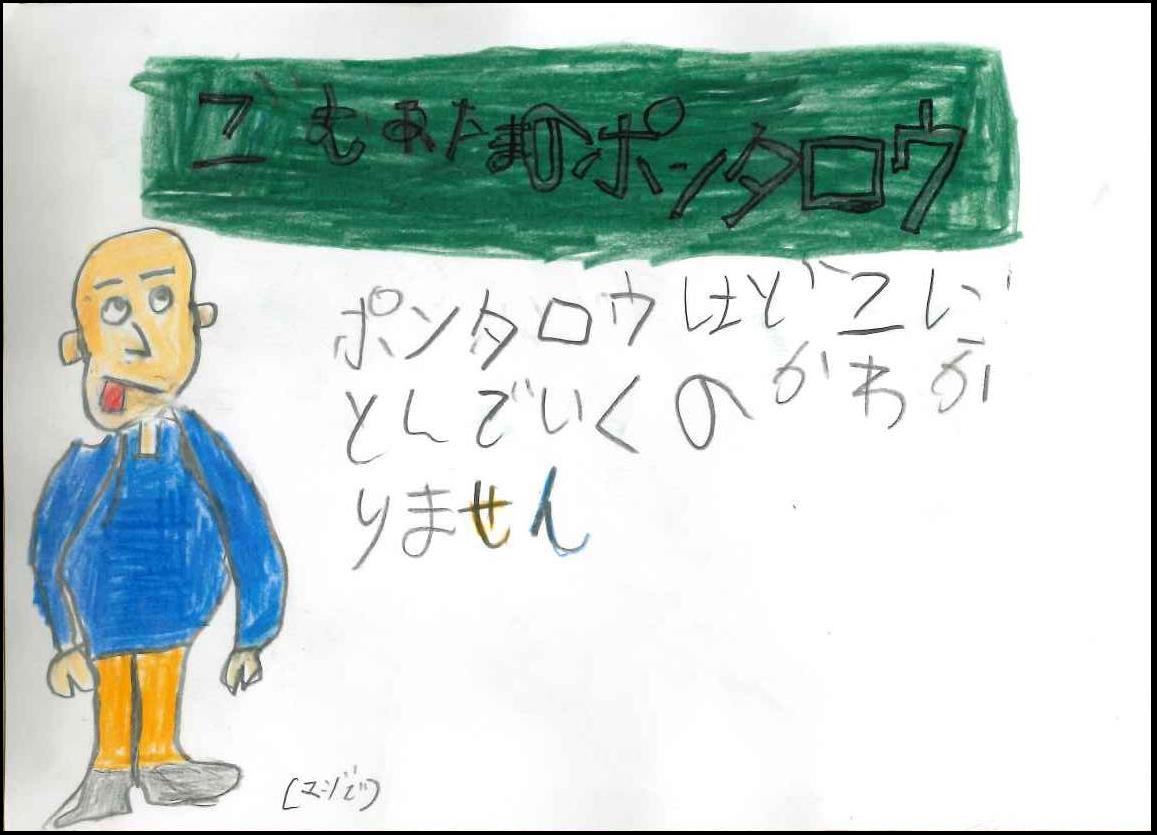 ごむあたまのポンタロウ
ポンタロウはどこに
とんでいくのかわか
りません